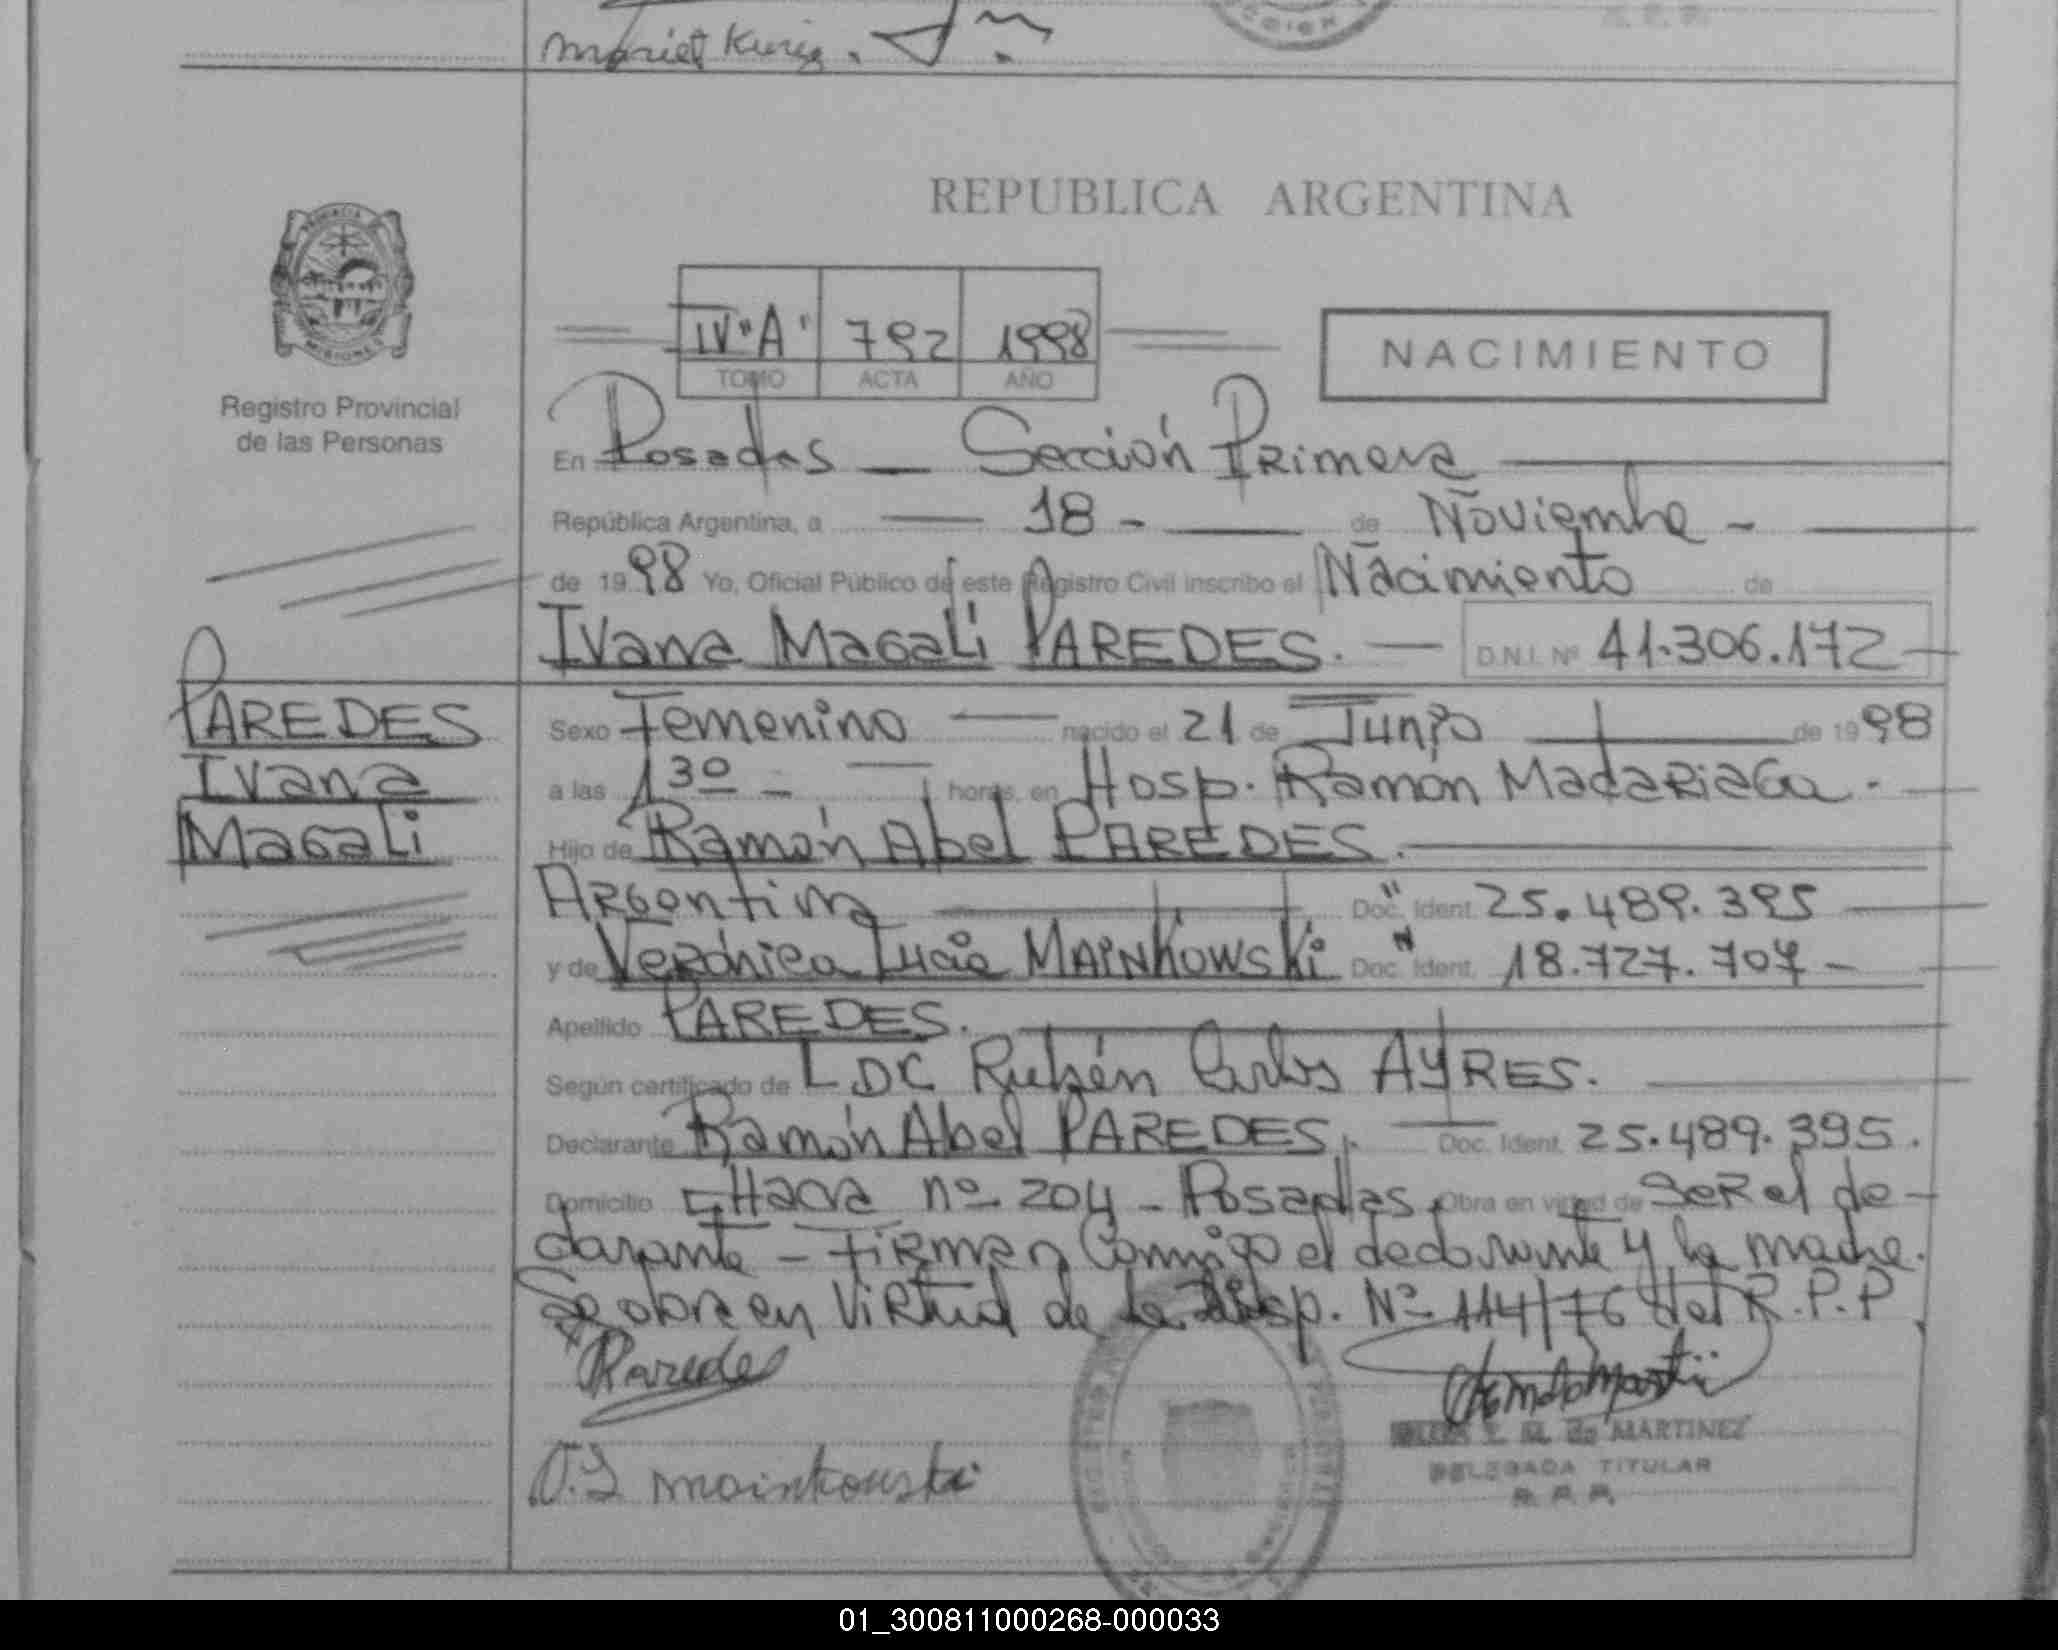 REPUBLICA ARGENTINA
PROVINCIA
MISIONES
Registro Provincial
de las Personas
IV "A" 792 1998
TOMO ACTA AÑO
NACIMIENTO
En Posadas — Sección Primera
República Argentina, a 18 - de Noviembre -
de 1998 Yo, Oficial Público de este Registro Civil inscribo el Nacimiento de
Ivana Magali PAREDES. — D.N.I. Nº 41.306.172
PAREDES
Ivana
Magali
Sexo Femenino nacido el 21 de Junio de 1998
a las 1 30 - horas, en Hosp. Ramón Madariaga.
Hijo de Ramón Abel PAREDES.
Argentina Doc. Ident. 25.489.395
y de Verónica Lucia MAINKOWSKi Doc. Ident. 18.727.707 -
Apellido PAREDES.
Según certificado de LDC Rubén Carlos AYRES.
Declarante Ramón Abel PAREDES. Doc. Ident. 25.489.395.
Domicilio CHacra nº 204 - Posadas. Obra en virtud de ser el de-
clarante - Firman Conmigo el declarante y la madre.
Se obra en Virtud de la Disp. Nº 114/76 del R.P.P
Paredes
V.L mainkouski
de MARTINEZ
DELEGADA TITULAR
R. P. P.
01_300811000268-000033